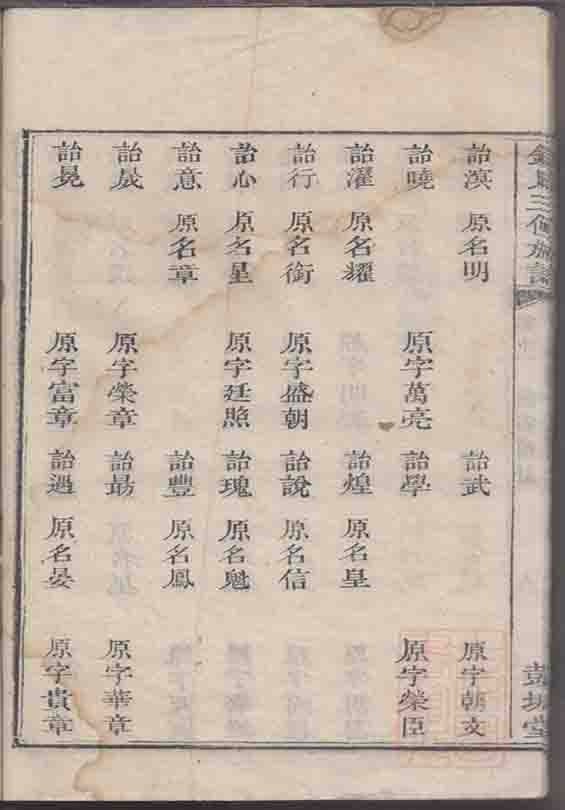 三何族譜
彭城堂
詒漠 原名明
詒武 原字朝文
詒曉 原字萬亮
詒學 原字榮臣
詒濯 原名耀
詒煌 原名皇
詒行 原名銜 原字盛朝
詒說 原名信
詒心 原名星 原字廷照
詒瑰 原名魁
詒意 原名章
詒豐 原名鳳
詒晟 原字榮章
詒最 原字華章
詒晃 原字富章
詒過 原名晏 原字貴章